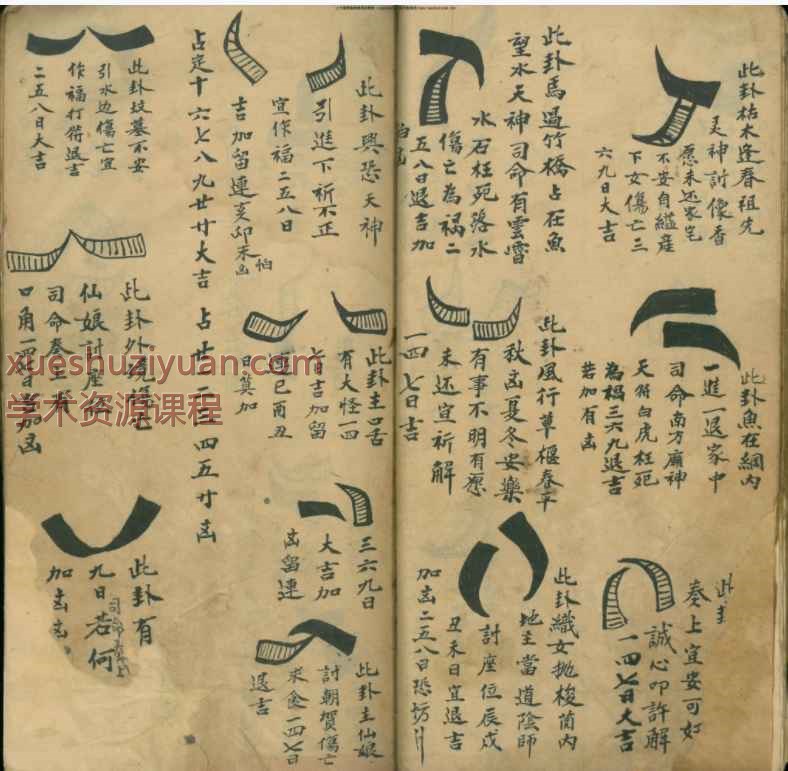 此卦枯木逢春祖先
灵神討像香
愿未还家宅
不安自縊產
下女傷亡三
六九日大吉
此卦馬過竹橋占在魚
望水天神司命有雲霄
水石枉死落水
傷亡為禍二
五八日退吉加
此卦魚在網內
一進一退家中
司命南方廟神
天符白虎枉死
為禍三六九退吉
若加有凶
此卦風行草偃春平
秋凶夏冬安樂
有事不明有愿
未还宜祈解
一四七日吉
此卦
奏上宜安可好
誠心叩許解
一四七日大吉
此卦織女拋梭茵內
地主當道陰師
討座位辰戌
丑未日宜退吉
加凶二五八日恐
此卦興恐天神
引進下祈不正
宜作福二五八日
吉加留連亥卯未凶
怕
占定十六七八九廿廿大吉
占此二三四五廿凶
此卦坟墓不安
引水边傷亡宜
作福打符退吉
二五八日大吉
此卦主口舌
有大怪一四
七日吉加留
連巳酉丑
日莫加
此卦外
仙娘討座
司命奏主
口角一四七日吉加凶
三六九日
大吉加
凶留連
此卦主仙娘
討朝賀傷亡
求食一四七日
退吉
此卦有
九日若何
司命奏上
加凶凶
xueshuziyuan.com
学术资源课程